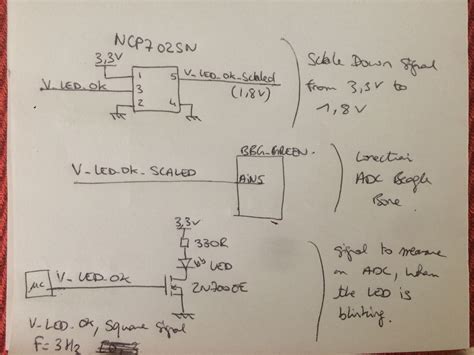 NCP702SN
3,3V
V_LED_OK
1
3
2
5
4
V_LED_OK_Scaled
(1,8V)
Scale Down Signal
from 3,3V to
1,8V
V_LED_OK_SCALED
BBG_GREEN
AIN5
ADC Beagle
Bone
3,3V
330R
LED
2N7000E
µC
V_LED_OK
signal to measure
on ADC, when
the LED is
blinking.
V_LED_OK, Square signal
F= 3Hz